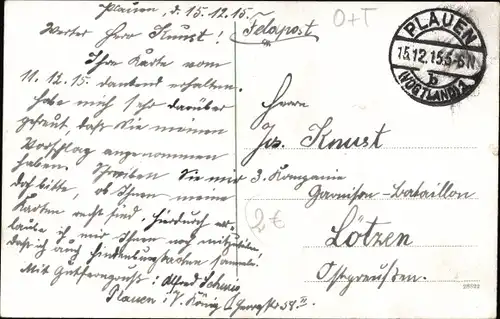 Plauen, d. 15.12.15.
Werter Herr Knust!
Feldpost
O+T
Ihre Karte vom
11.12.15. dankend erhalten.
Habe mich sehr darüber
gefreut, daß Sie meinen
Vorschlag angenommen
haben. Schreiben Sie mir
doch bitte, ob Ihnen meine
Karten recht sind. Hierdurch er-
laube ich mir Ihnen noch mitzuteilen
daß ich auch Hindenburgkarten sammle.
Mit Gutferngruß: Alfred
Plauen i/V. König Georgstr 58 II
PLAUEN
15.12.15.5-6N
b
(VOGTLAND)1
Herrn
Jos. Knust
3. Kompanie
Garnison-Bataillon
Lötzen
Ostpreußen.
2€